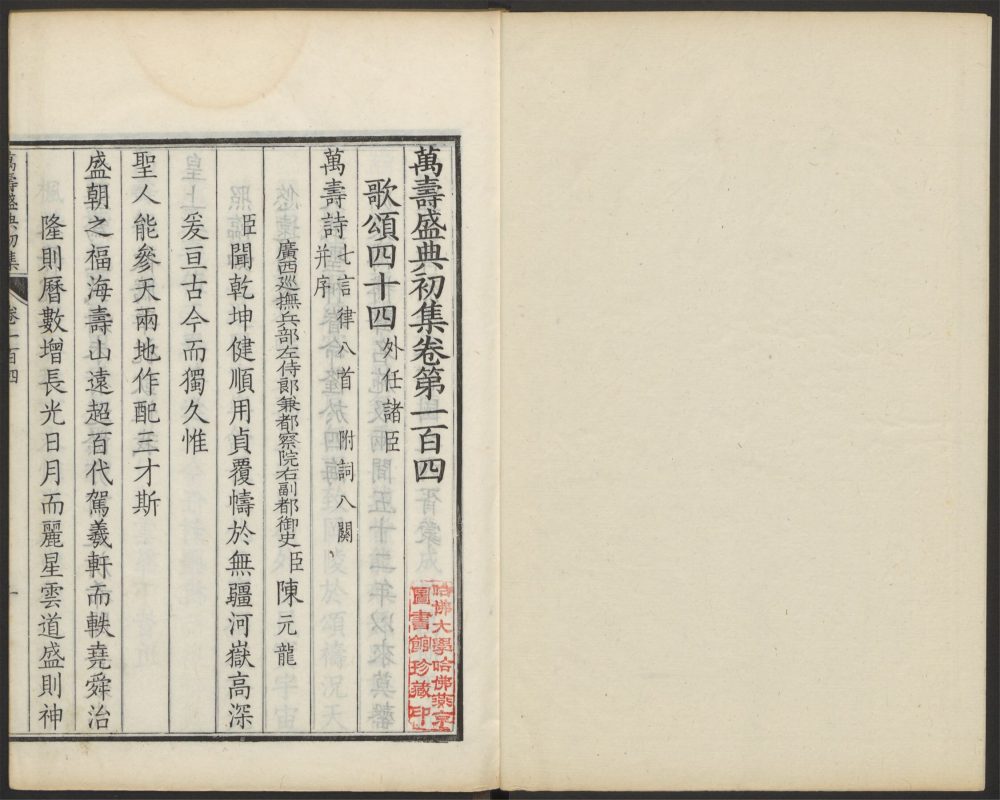 萬壽盛典初集卷第一百四
歌頌四十四 外任諸臣
萬壽詩 七言律八首 附詞八闋
并序
廣西巡撫兵部左侍郎兼都察院右副都御史臣陳元龍
臣聞乾坤健順用貞覆幬於無疆河嶽高深
爰亘古今而獨久惟
聖人能參天兩地作配三才斯
盛朝之福海壽山遠超百代駕羲軒而軼堯舜治
隆則曆數增長光日月而麗星雲道盛則神
萬壽盛典初集 卷一百四 一
哈佛大學哈佛燕京
圖書館珍藏印